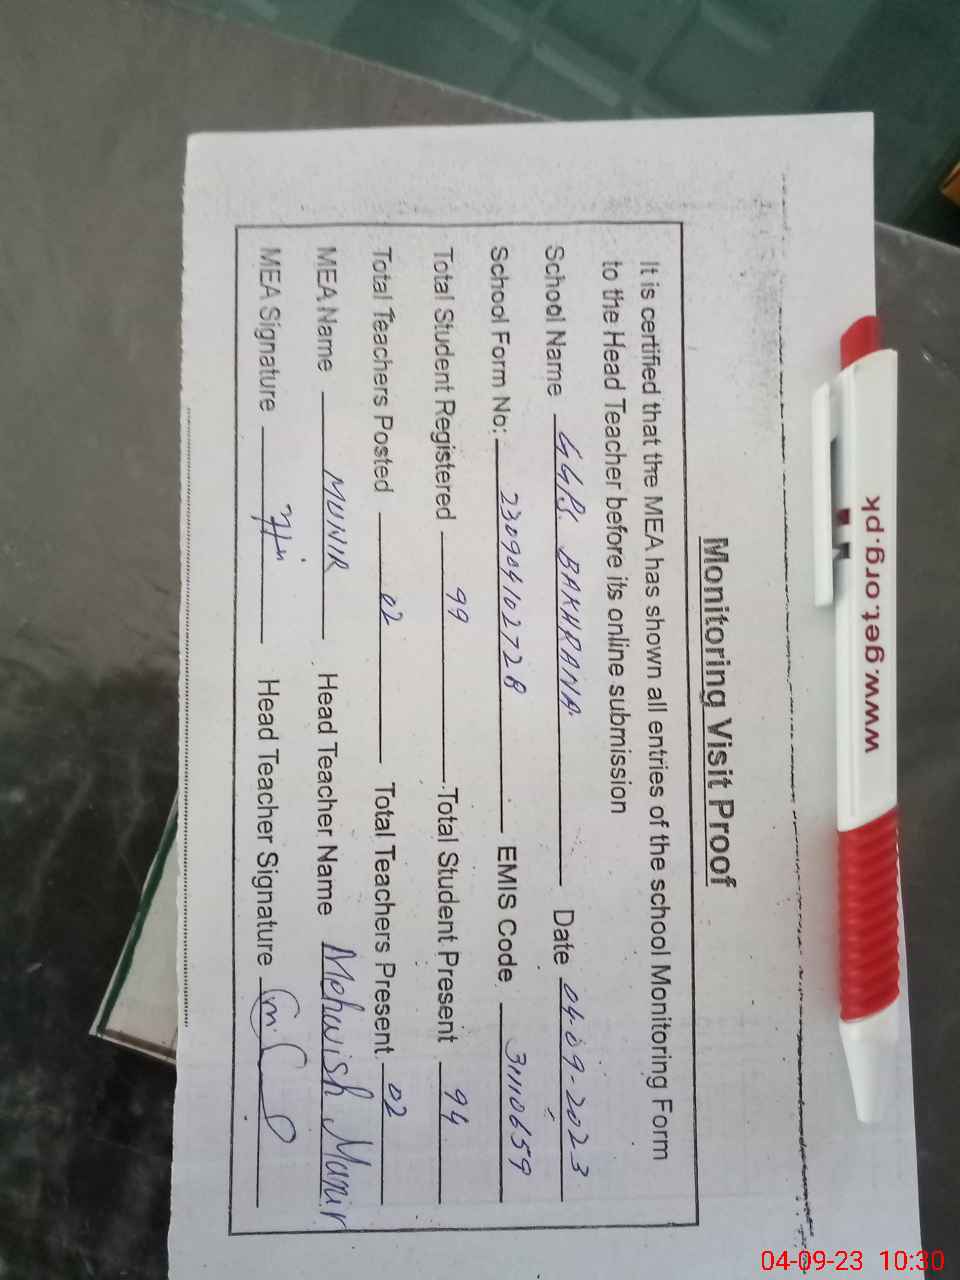 www.get.org.pk
Monitoring Visit Proof
It is certified that the MEA has shown all entries of the school Monitoring Form
to the Head Teacher before its online submission
School Name GGPS BAKHRANA Date 04-09-2023
School Form No: 230904102728 EMIS Code 31110659
Total Student Registered 99 Total Student Present 94
Total Teachers Posted 02 Total Teachers Present 02
MEA Name MUNIR Head Teacher Name Mehwish Munir
MEA Signature Head Teacher Signature
04-09-23 10:30